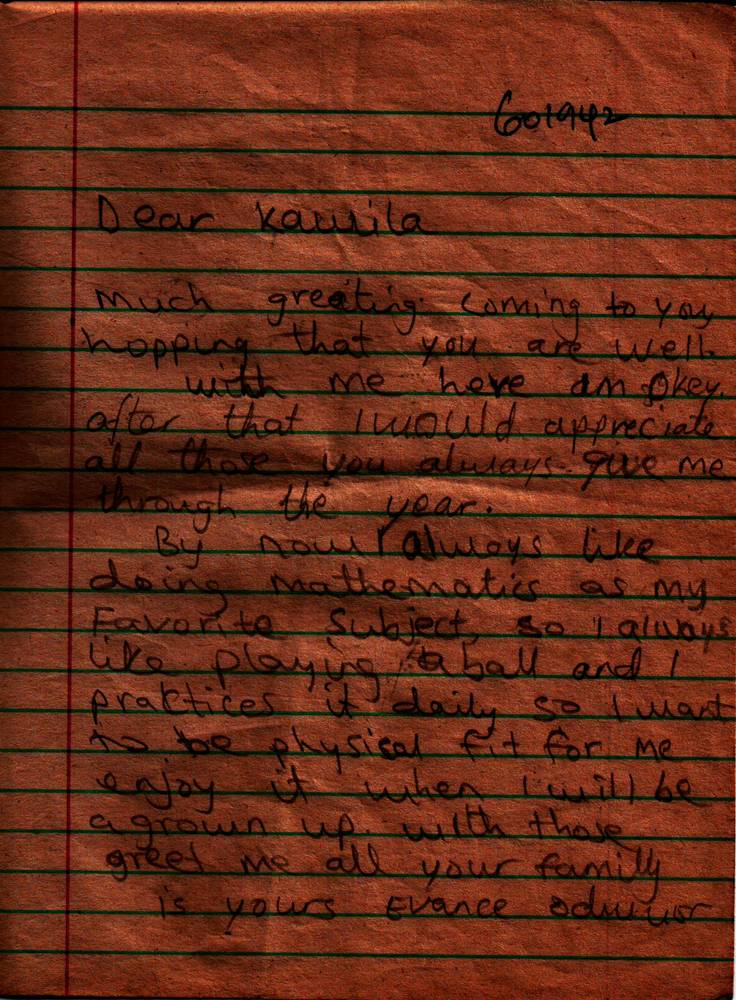 601942
Dear Kamila
Much greeting coming to you,
hopping that you are well.
with me here am okey.
after that I would appreciate
all those you always give me
through the year.
By now I always like
doing mathematics as my
Favorite Subject, so I always
like playing a ball and I
praktices it daily so I want
to be physical fit for me
enjoy it when I will be
a grown up. with those
greet me all your family
is yours Evance